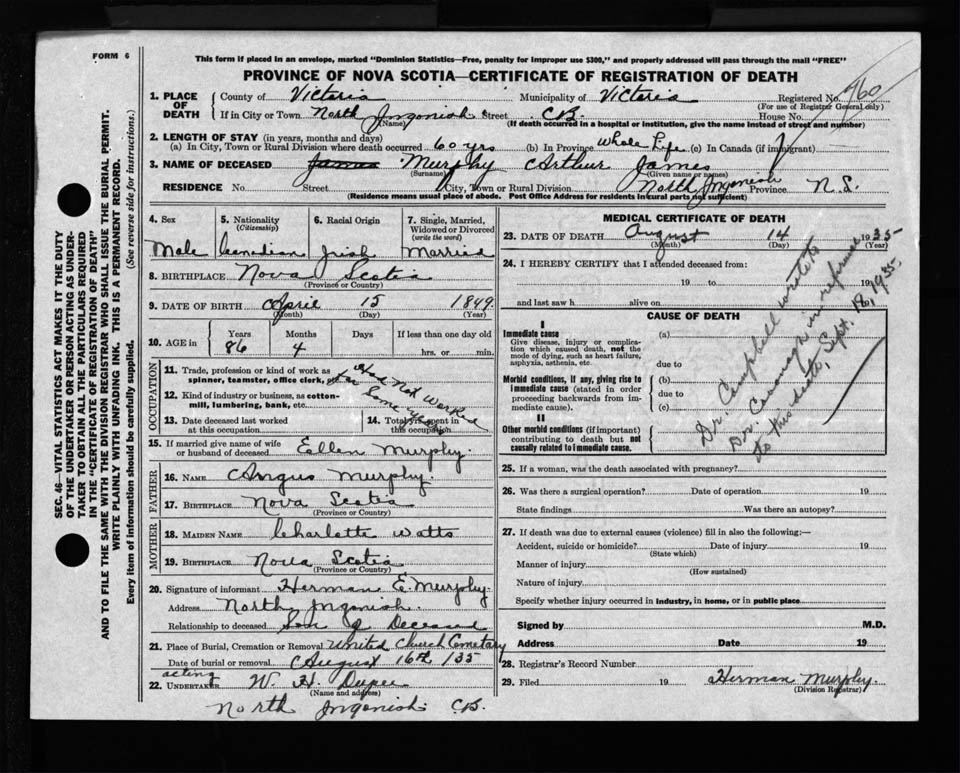 FORM 6
This form if placed in an envelope, marked "Dominion Statistics—Free, penalty for improper use $300," and properly addressed will pass through the mail "FREE"
PROVINCE OF NOVA SCOTIA—CERTIFICATE OF REGISTRATION OF DEATH
SEC. 46—VITAL STATISTICS ACT MAKES IT THE DUTY
OF THE UNDERTAKER OR PERSON ACTING AS UNDER-
TAKER TO OBTAIN ALL THE PARTICULARS REQUIRED
IN THE "CERTIFICATE OF REGISTRATION OF DEATH"
AND TO FILE THE SAME WITH THE DIVISION REGISTRAR WHO SHALL ISSUE THE BURIAL PERMIT.
WRITE PLAINLY WITH UNFADING INK. THIS IS A PERMANENT RECORD.
Every item of information should be carefully supplied. (See reverse side for instructions.)
1. PLACE OF DEATH County of Victoria Municipality of Victoria Registered No. 760
(For use of Registrar General only)
If in City or Town North Ingonish Street C.B. House No.
(Name) (If death occurred in a hospital or institution, give the name instead of street and number)
2. LENGTH OF STAY (in years, months and days)
(a) In City, Town or Rural Division where death occurred 60 yrs (b) In Province Whole Life (c) In Canada (if immigrant)
3. NAME OF DECEASED James Murphy Arthur James
(Surname) (Given name or names)
RESIDENCE No. Street City, Town or Rural Division North Ingonish Province N.S.
(Residence means usual place of abode. Post Office Address for residents in rural parts not sufficient)
4. Sex 5. Nationality (Citizenship) 6. Racial Origin 7. Single, Married, Widowed or Divorced (write the word)
Male Canadian Irish Married
8. BIRTHPLACE Nova Scotia
(Province or Country)
9. DATE OF BIRTH April 15 1849
(Month) (Day) (Year)
10. AGE in Years Months Days If less than one day old
86 4 hrs. or min.
OCCUPATION
11. Trade, profession or kind of work as spinner, teamster, office clerk, etc.
Had Not Worked
for Some years
12. Kind of industry or business, as cotton-mill, lumbering, bank, etc.
13. Date deceased last worked at this occupation
14. Total yrs. spent in this occupation
15. If married give name of wife or husband of deceased Ellen Murphy.
FATHER
16. NAME Angus Murphy.
17. BIRTHPLACE Nova Scotia
(Province or Country)
MOTHER
18. MAIDEN NAME Charlotte Watts
19. BIRTHPLACE Nova Scotia
(Province or Country)
20. Signature of informant Herman E. Murphy.
Address North Ingonish.
Relationship to deceased Son of Deceased
21. Place of Burial, Cremation or Removal United Church Cemetary
Date of burial or removal August 16th 135
acting
22. UNDERTAKER W. H. Dupee
(Name and address)
North Ingonish C.B.
MEDICAL CERTIFICATE OF DEATH
23. DATE OF DEATH August 14 1935
(Month) (Day) (Year)
24. I HEREBY CERTIFY that I attended deceased from:
19 to 19
and last saw h alive on
CAUSE OF DEATH
I
Immediate cause
Give disease, injury or complication which caused death, not the mode of dying, such as heart failure, asphyxia, asthenia, etc.
(a)
due to
Morbid conditions, if any, giving rise to immediate cause (stated in order proceeding backwards from immediate cause).
(b)
due to
(c)
II
Other morbid conditions (if important) contributing to death but not causally related to immediate cause.
Dr. Campbell wrote to
Dr. in reference
to this death, Sept. 18, 1935.
25. If a woman, was the death associated with pregnancy?
26. Was there a surgical operation? Date of operation 19
State findings Was there an autopsy?
27. If death was due to external causes (violence) fill in also the following:—
Accident, suicide or homicide? Date of injury 19
(State which)
Manner of injury
(How sustained)
Nature of injury
Specify whether injury occurred in industry, in home, or in public place
Signed by M.D.
Address Date 19
28. Registrar's Record Number
29. Filed 19 Herman Murphy.
(Division Registrar)